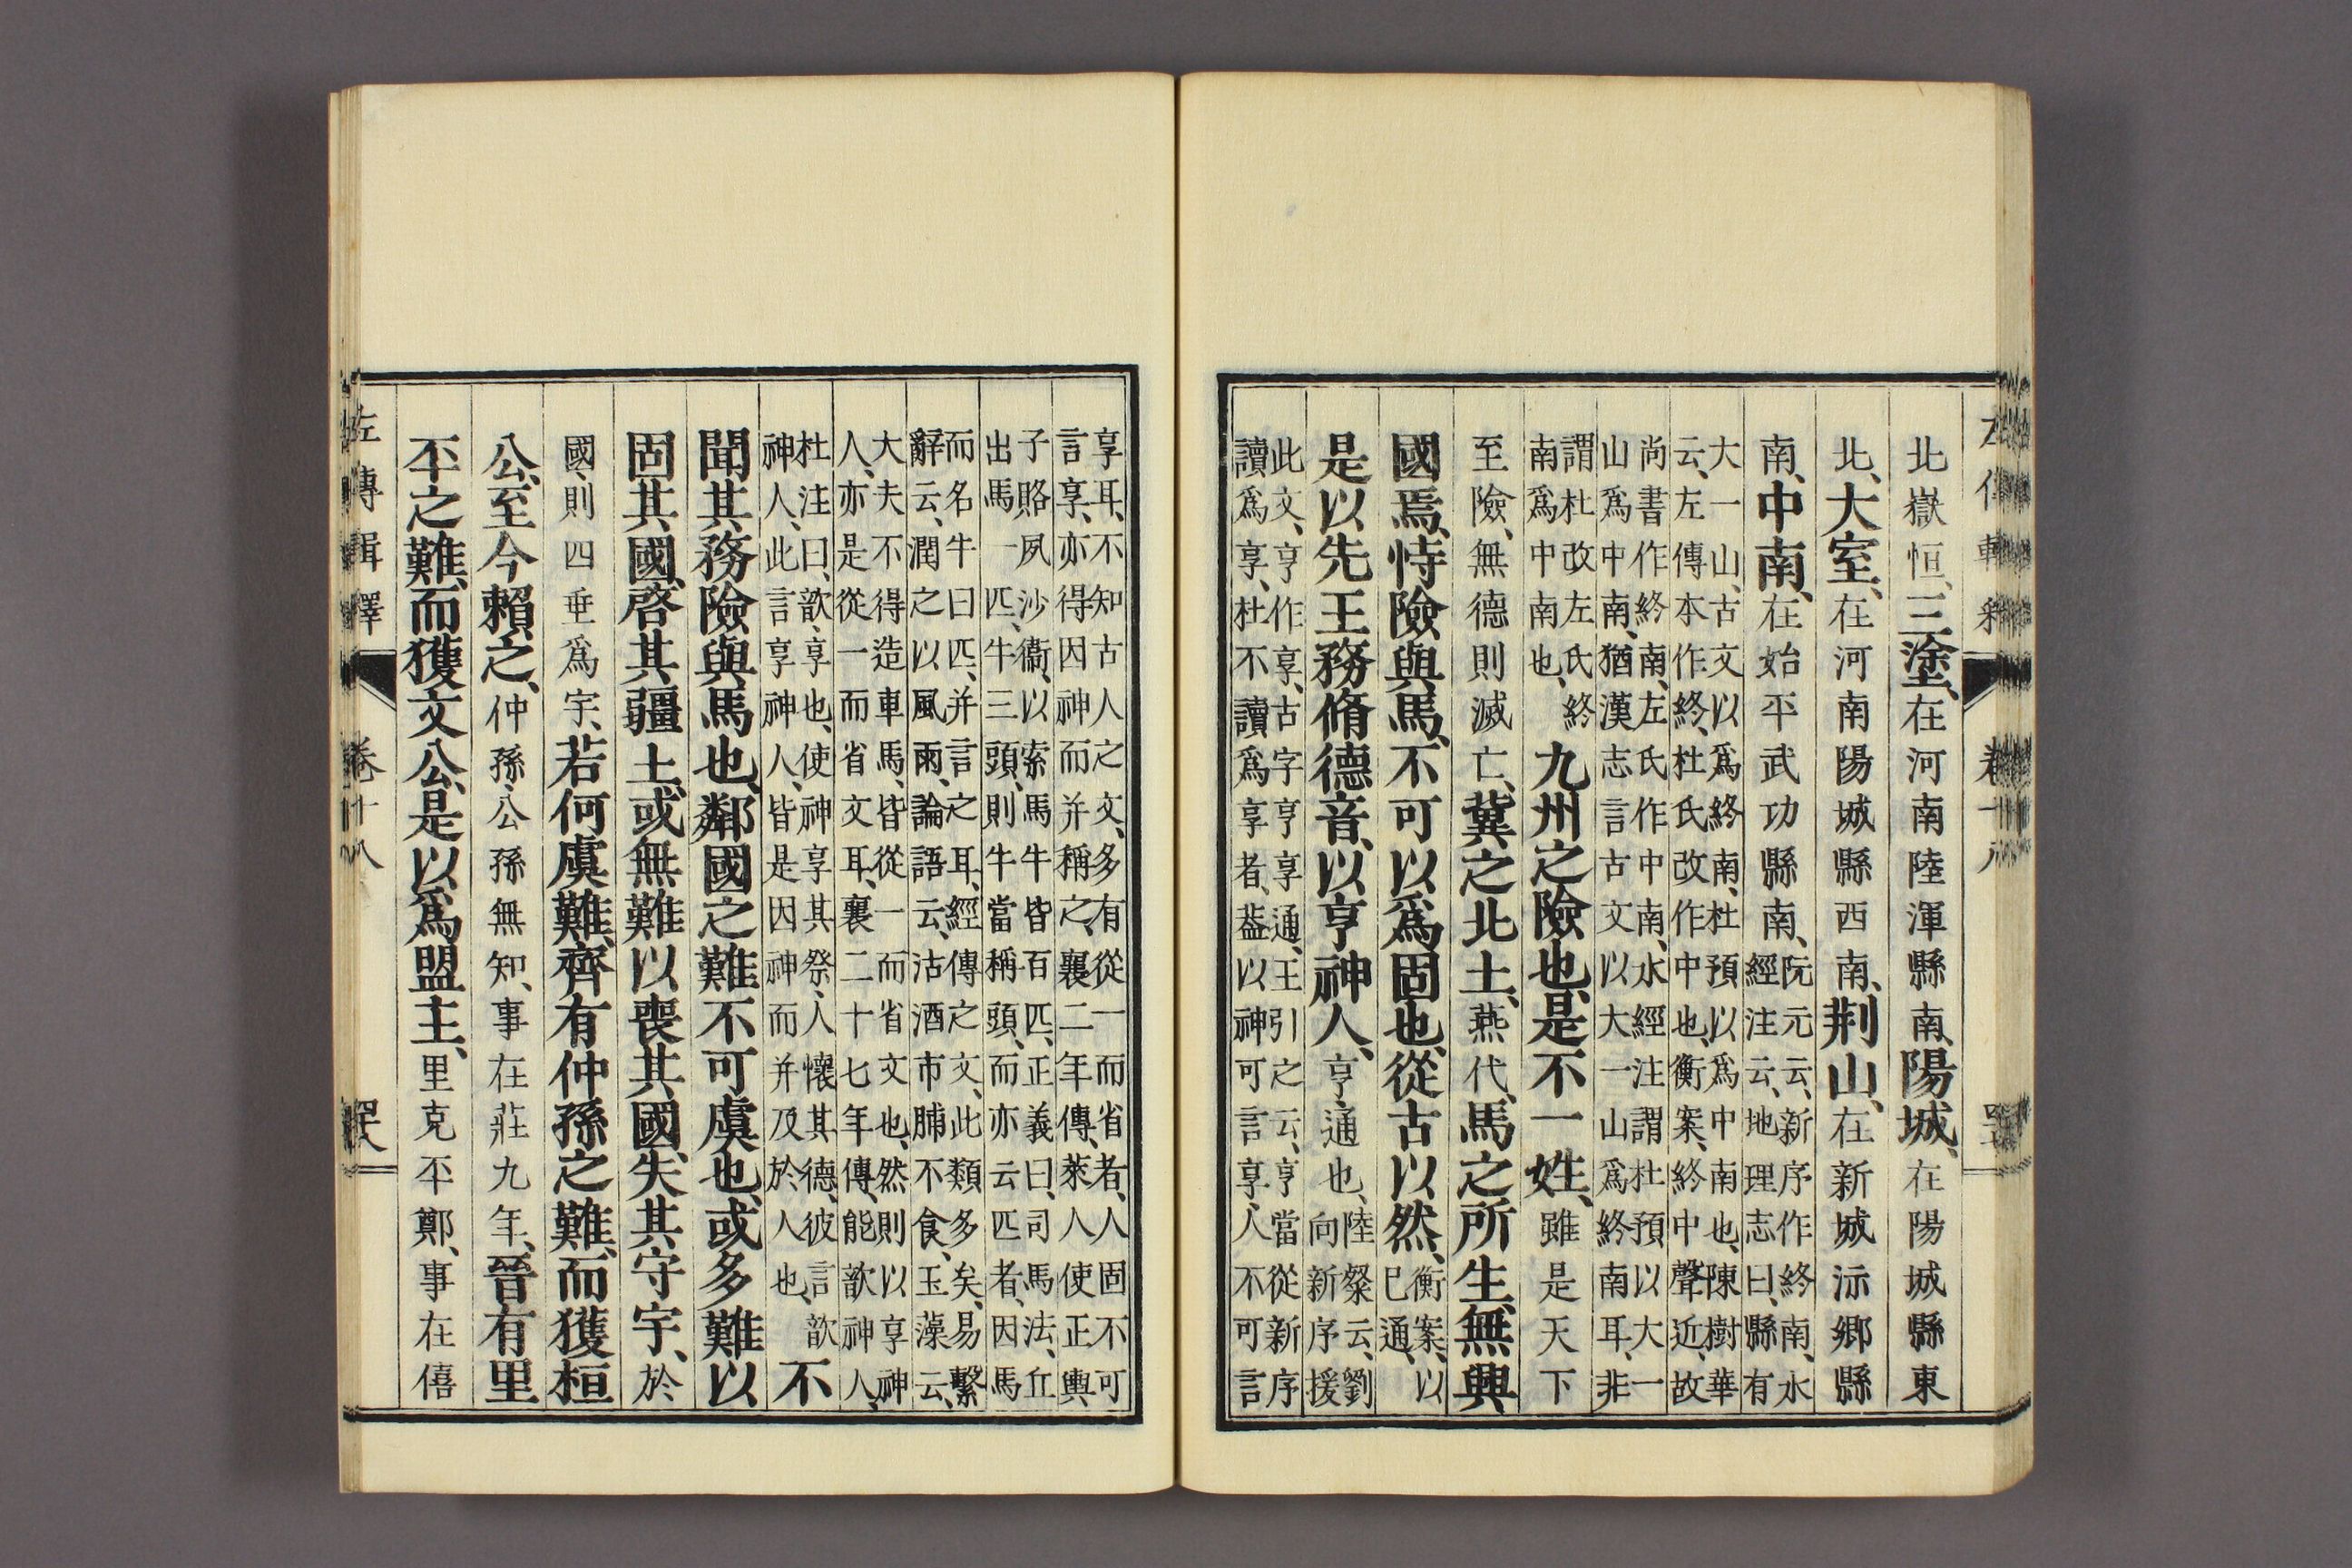 北嶽恒、三塗、在河南陸渾縣南、陽城、在陽城縣東
北、大室、在河南陽城縣西南、荆山、在新城沶鄉縣
南、中南、在始平武功縣南、阮元云、新序作終南、水
經注云、地理志曰、縣有
大一山、古文以爲終南、杜預以爲中南也、陳樹華
云、左傳本作終、杜氏改作中也、衡案、終中聲近、故
尚書作終南、左氏作中南、水經注謂杜預以大一
山爲中南、猶漢志言古文以大一山爲終南耳、非
謂杜改左氏終
南爲中南也、九州之險也、是不一姓、雖是天下
至險、無德則滅亡、冀之北土、燕代、馬之所生、無興
國焉、恃險與馬、不可以爲固也、從古以然、衡案、以
已通、
是以先王務脩德音、以亨神人、亨、通也、陸粲云、劉
向新序援
此文、亨作享、古字亨享通、王引之云、亨當從新序
讀爲享、杜不讀爲享者、葢以神可言享、人不可言
享耳、不知古人之文、多有從一而省者、人固不可
言享、亦得因神而并稱之、襄二年傳、萊人使正輿
子賂夙沙衞、以索馬牛皆百匹、正義曰、司馬法、丘
出馬一匹、牛三頭、則牛當稱頭、而亦云匹者、因馬
而名牛曰匹、并言之耳、經傳之文、此類多矣、易繫
辭云、潤之以風雨、論語云、沽酒市脯不食、玉藻云、
大夫不得造車馬、皆從一而省文也、然則以享神
人、亦是從一而省文耳、襄二十七年傳、能歆神人、
杜注曰、歆、享也、使神享其祭、人懷其德、彼言歆
神人、此言享神人、皆是因神而并及於人也、不
聞其務險與馬也、鄰國之難、不可虞也、或多難以
固其國、啓其疆土、或無難以喪其國、失其守宇、於
國、則四垂爲宇、若何虞難、齊有仲孫之難、而獲桓
公、至今賴之、仲孫、公孫無知、事在莊九年、晉有里
㔻之難、而獲文公、是以爲盟主、里克㔻鄭、事在僖
左傳輯釋 卷十八